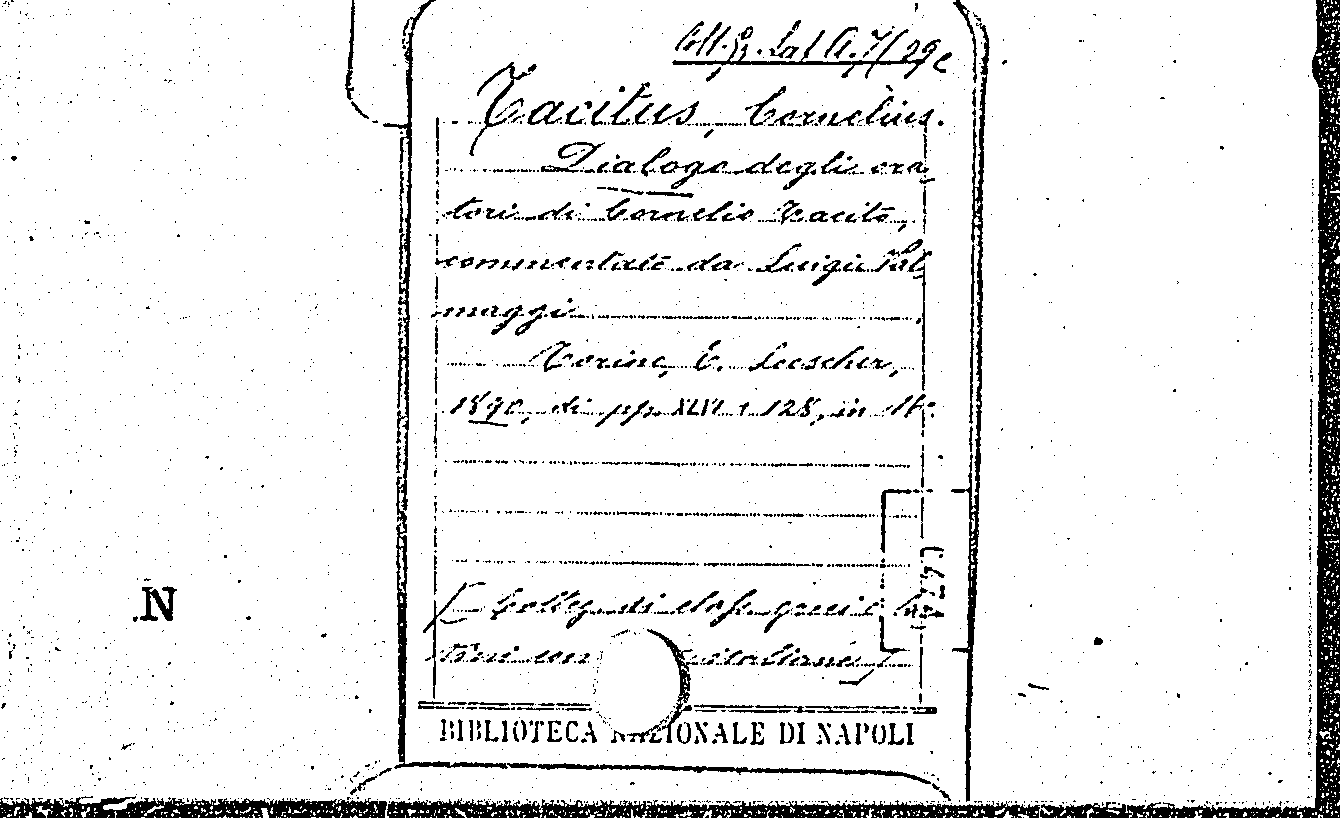 Coll. Gr. Lat A. 7/29c
Tacitus, Cornelius.
Dialogo degli ora-
tori di Cornelio Tacito,
commentato da Luigi Val-
maggi
Torino, E. Loescher,
1890, di pp. XLVI + 128, in
N
[Collez. di class. greci e la-
tini con italiane]
BIBLIOTECA NAZIONALE DI NAPOLI